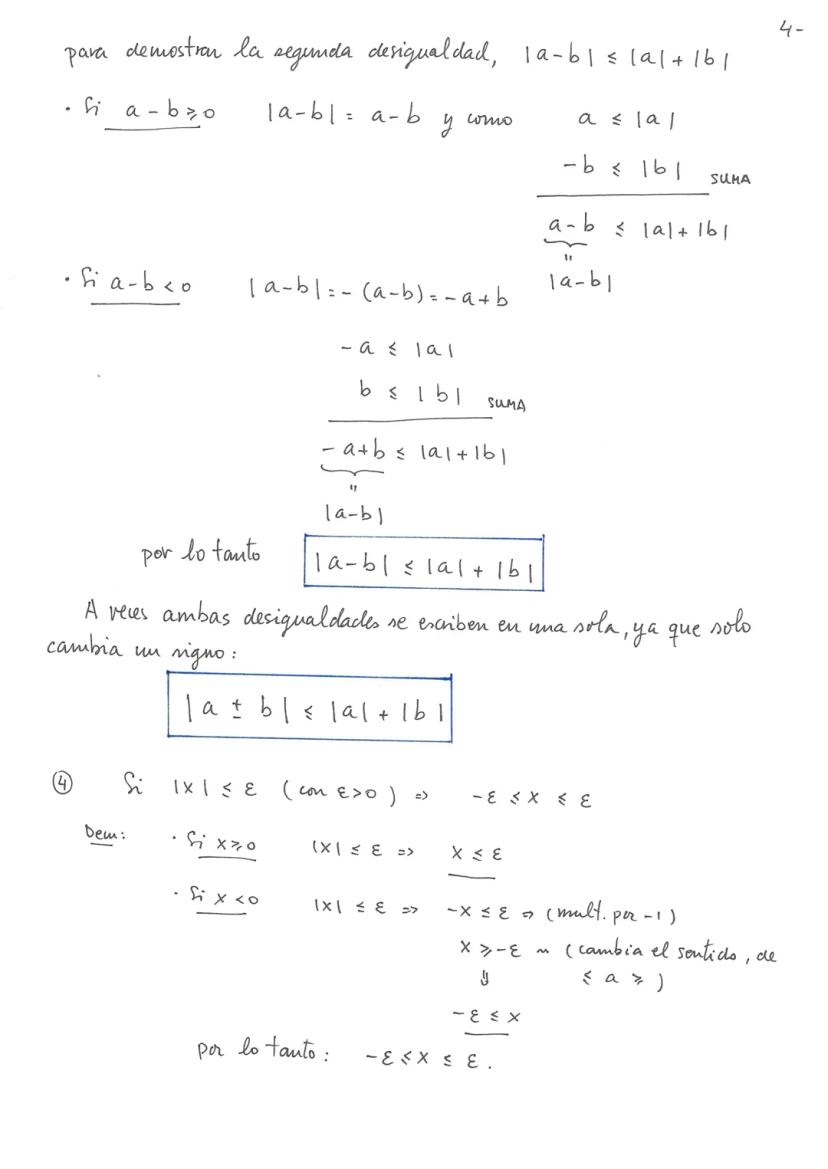 4-
para demostrar la segunda desigualdad, |a-b| ≤ |a|+|b|
· Si a-b≥0 |a-b| = a-b y como a ≤ |a|
-b ≤ |b| SUMA
a-b ≤ |a|+|b|
"
|a-b|
· Si a-b<0 |a-b| = -(a-b) = -a+b
-a ≤ |a|
b ≤ |b| SUMA
-a+b ≤ |a|+|b|
"
|a-b|
por lo tanto |a-b| ≤ |a| + |b|
A veces ambas desigualdades se escriben en una sola, ya que solo
cambia un signo:
|a ± b| ≤ |a| + |b|
④ Si |x| ≤ ε (con ε>0) => -ε ≤ x ≤ ε
Dem: · Si x≥0 |x| ≤ ε => x ≤ ε
· Si x<0 |x| ≤ ε => -x ≤ ε => (mult. por -1)
x ≥ -ε ~ (cambia el sentido, de
⇓ ≤ a ≥)
-ε ≤ x
por lo tanto: -ε ≤ x ≤ ε.